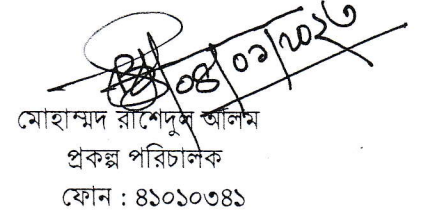 ০৪/০১/২০২৩
মোহাম্মদ রাশেদুল আলম
প্রকল্প পরিচালক
ফোন : ৪১০১০৩৪১